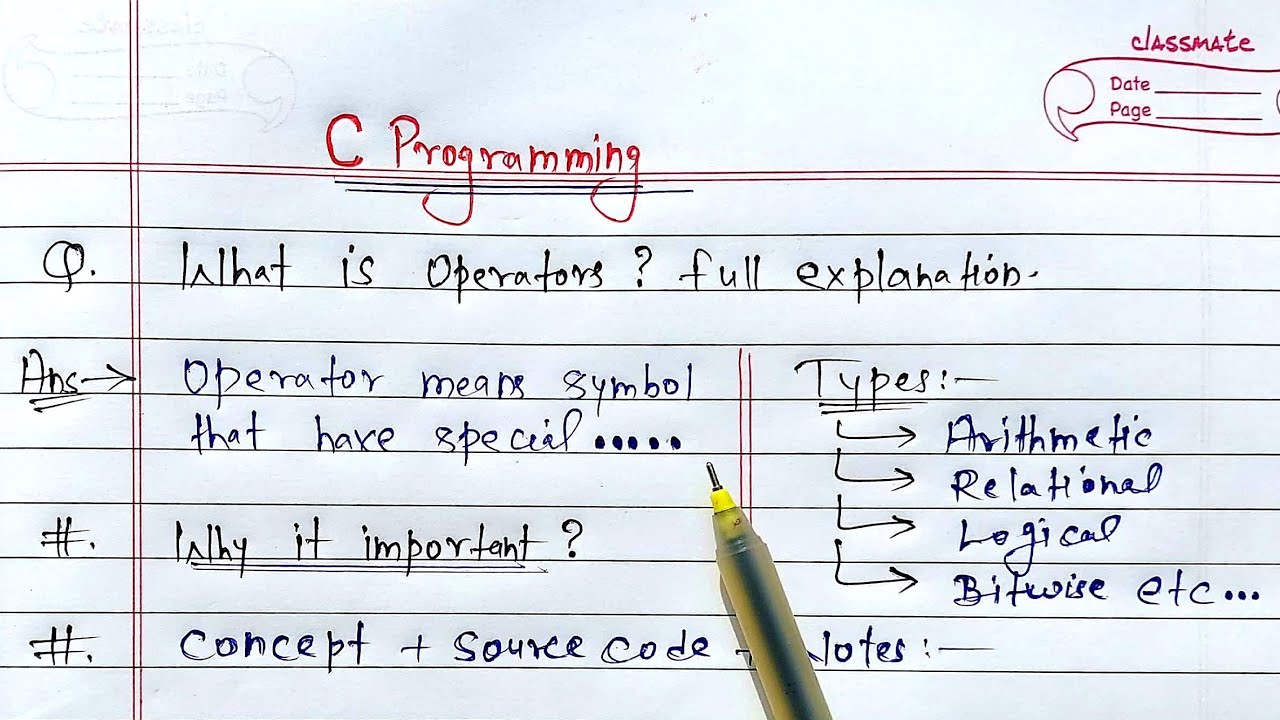 classmate
Date
Page
C Programming
Q. What is operators? full explanation.
Ans→ Operator means symbol
that have special.....
Types:—
→ Arithmetic
→ Relational
→ Logical
→ Bitwise etc...
#. Why it important?
#. Concept + Source code + Notes:—